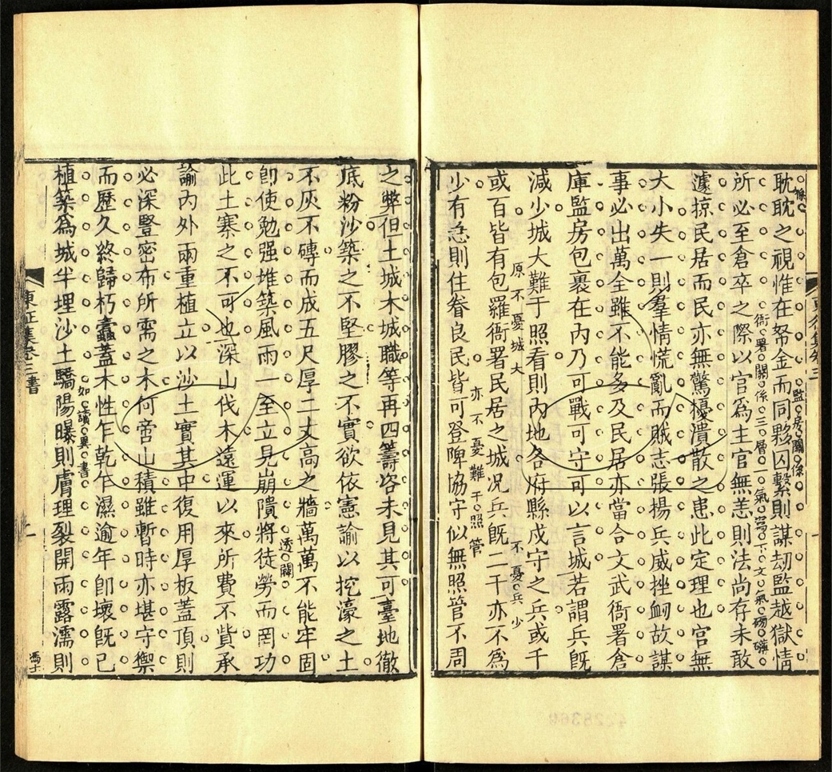 耽耽之視惟在帑金而同夥囚繫則謀劫監越獄情
所必至倉卒之際以官爲主官無恙則法尚存未敢
遽掠民居而民亦無驚擾潰散之患此定理也官無
大小失一則羣情慌亂而賊志張揚兵威挫衂故謀
事必出萬全雖不能多及民居亦當合文武衙署倉
庫監房包裹在內乃可戰可守可以言城若謂兵旣
減少城大難于照看則內地各府縣戍守之兵或千
或百皆有包羅衙署民居之城况兵旣二千亦不爲
少有恙則住眷良民皆可登陴協守似無照管不周
監房關係
衙署關係三層一氣寫下文氣磅礴
原不憂城大
亦不憂難于照管
不憂兵少
東征集卷三
之弊但土城木城職等再四籌咨未見其可臺地徹
底粉沙築之不堅膠之不實欲依憲諭以挖濠之土
不灰不磚而成五尺厚二丈高之牆萬萬不能牢固
卽使勉强堆築風雨一至立見崩潰將徒勞而罔功
此土寨之不可也深山伐木遠運以來所費不貲承
諭內外兩重植立以沙土實其中復用厚板蓋頂則
必深豎密布所需之木何啻山積雖暫時亦堪守禦
而歷久終歸朽蠹蓋木性乍乾乍濕逾年卽壞旣已
植築爲城半埋沙土驕陽曝則膚理裂開雨露濡則
透闢
如讀異書
東征集卷三 書